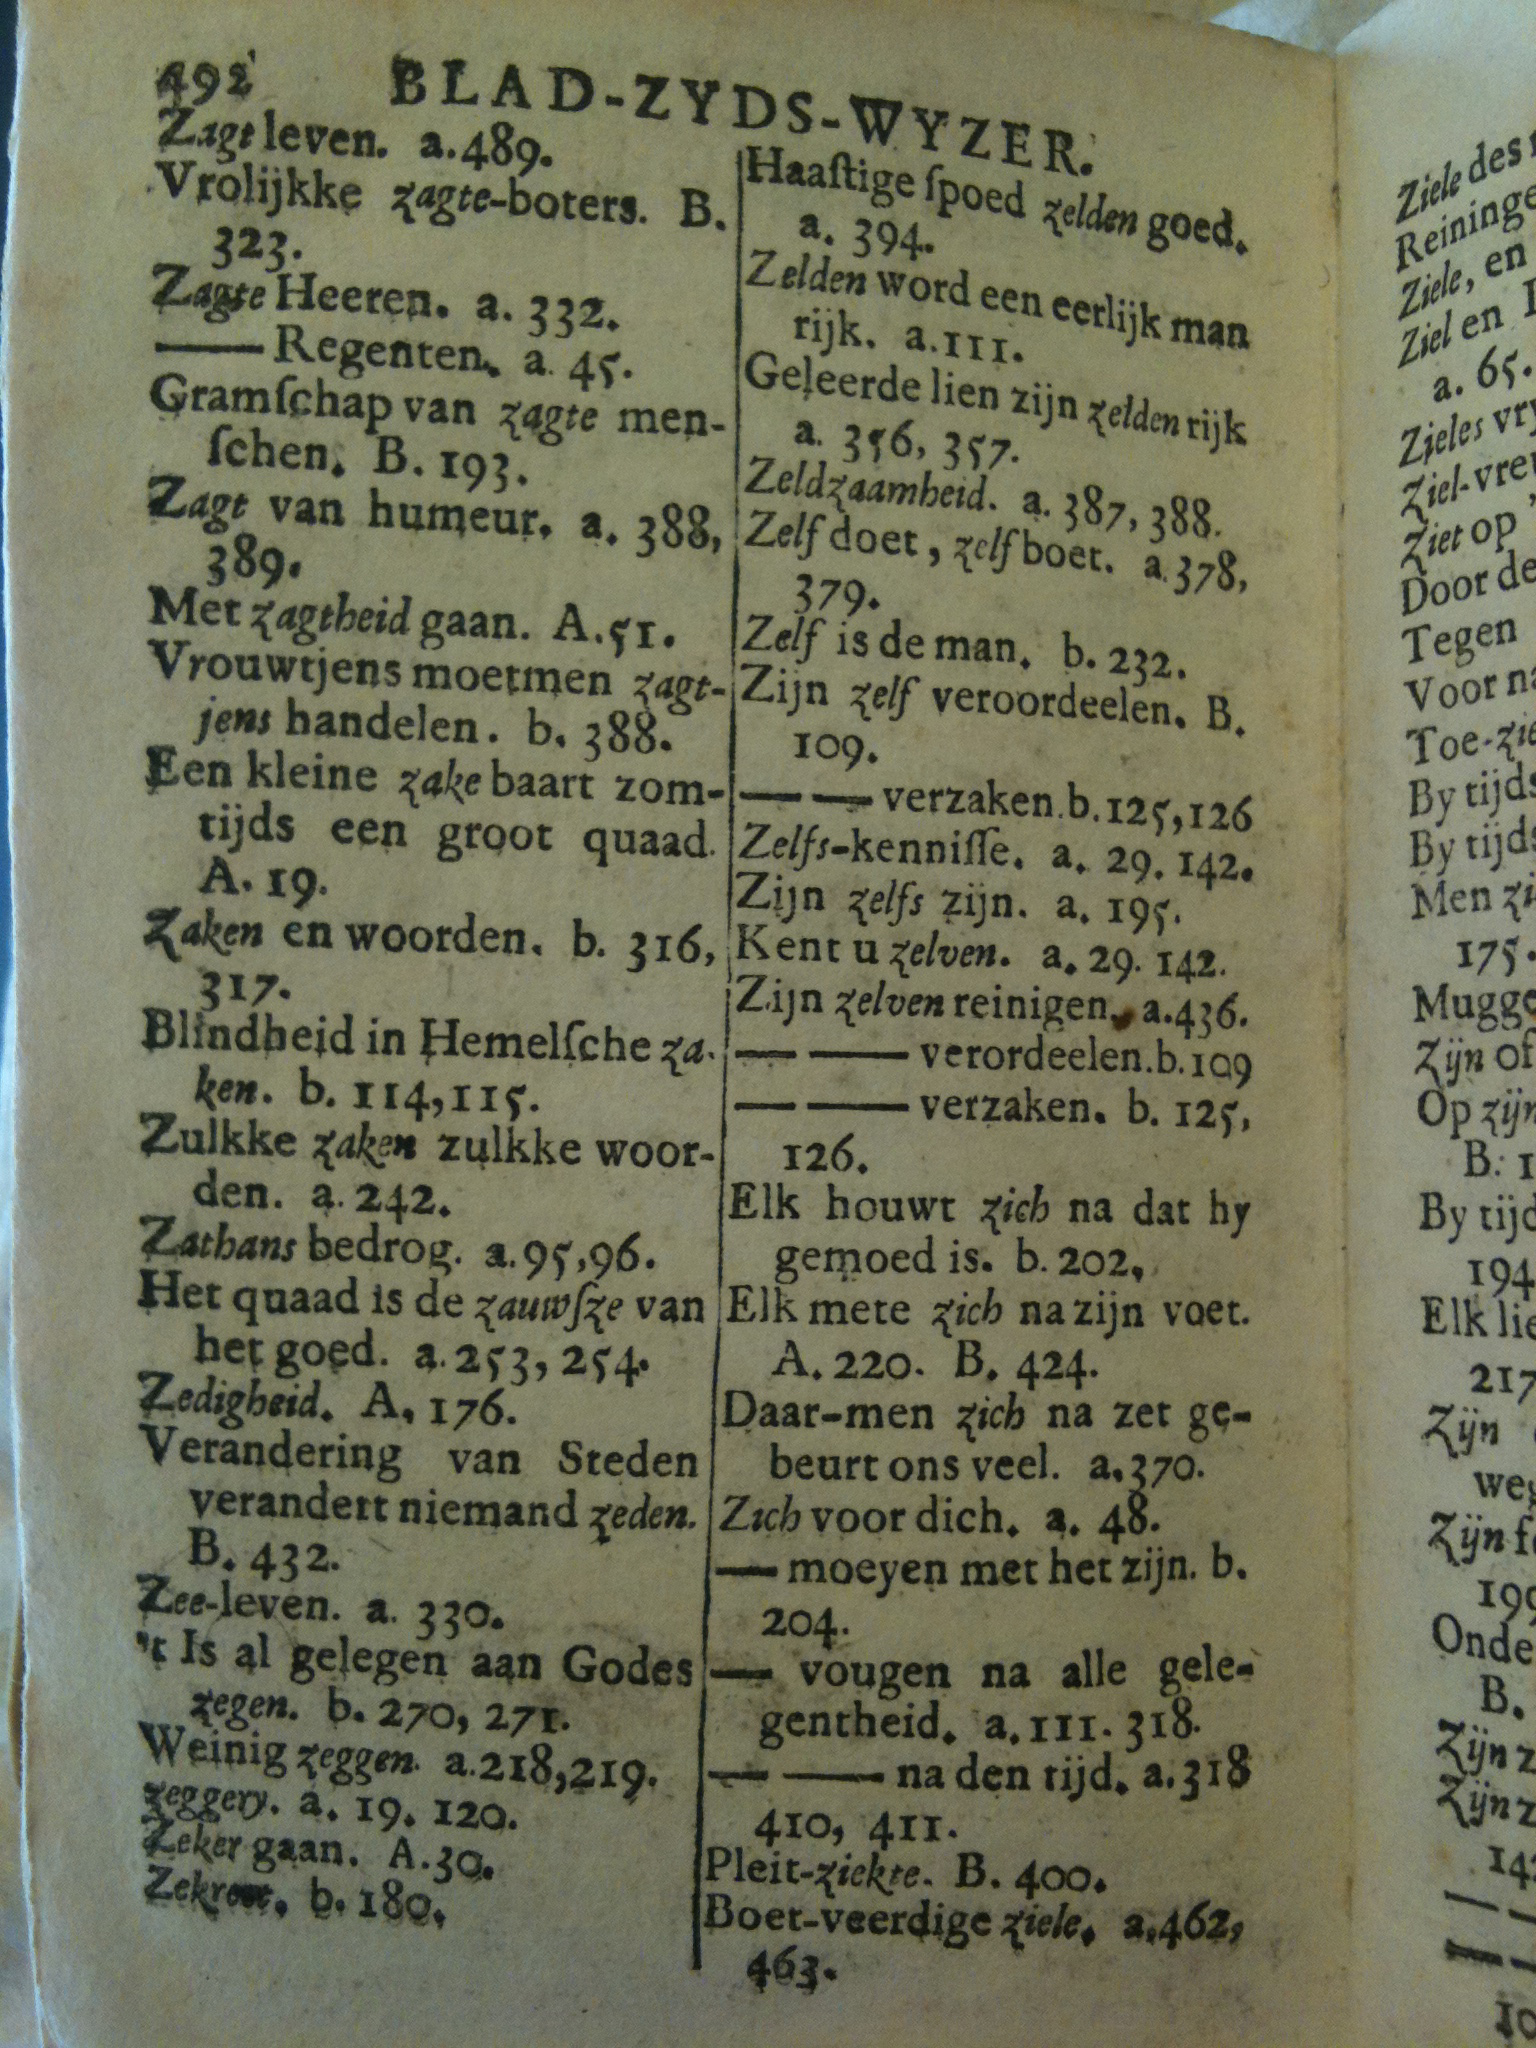 492 BLAD-ZYDS-WYZER.
Zagt leven. a.489.
Vrolijkke zagte-boters. B.
323.
Zagte Heeren. a. 332.
—— Regenten. a. 45.
Gramſchap van zagte men-
ſchen. B. 193.
Zagt van humeur. a. 388,
389.
Met zagtheid gaan. A.51.
Vrouwtjens moetmen zagt-
jens handelen. b. 388.
Een kleine zake baart zom-
tijds een groot quaad.
A. 19.
Zaken en woorden. b. 316,
317.
Blindheid in Hemelſche za-
ken. b. 114,115.
Zulkke zaken zulkke woor-
den. a. 242.
Zathans bedrog. a.95,96.
Het quaad is de zauwſze van
het goed. a. 253, 254.
Zedigheid. A, 176.
Verandering van Steden
verandert niemand zeden.
B. 432.
Zee-leven. a. 330.
't Is al gelegen aan Godes
zegen. b. 270, 271.
Weinig zeggen. a.218,219.
zeggery. a. 19. 120.
Zeker gaan. A.30.
b. 180.
Haaſtige ſpoed zelden goed.
a. 394.
Zelden word een eerlijk man
rijk. a.111.
Geleerde lien zijn zelden rijk
a. 356, 357.
Zeldzaamheid. a. 387, 388.
Zelf doet, zelf boet. a.378,
379.
Zelf is de man. b. 232.
Zijn zelf veroordeelen. B.
109.
— — verzaken.b.125,126
Zelfs-kenniſſe. a. 29. 142.
Zijn zelfs zijn. a. 195.
Kent u zelven. a. 29. 142.
Zijn zelven reinigen. a.436.
— —— verordeelen.b.109
— —— verzaken. b. 125,
126.
Elk houwt zich na dat hy
gemoed is. b. 202,
Elk mete zich na zijn voet.
A. 220. B. 424.
Daar-men zich na zet ge-
beurt ons veel. a.370.
Zich voor dich. a. 48.
— moeyen met het zijn. b.
204.
— vougen na alle gele-
gentheid. a.111. 318.
— —— na den tijd. a.318
410, 411.
Pleit-ziekte. B. 400.
Boet-veerdige ziele. a.462,
463.
Ziele des
Reininge
Ziele, en
Ziel en
a. 65.
Zieles
Ziel-
Ziet op
Door de
Tegen
Voor
Toe-
By tijds
By tijds
Men
175.
Zijn of
Op
B. 1
By
194
Elk
217
Zijn
Zijn
B.
Zijn
Zijn